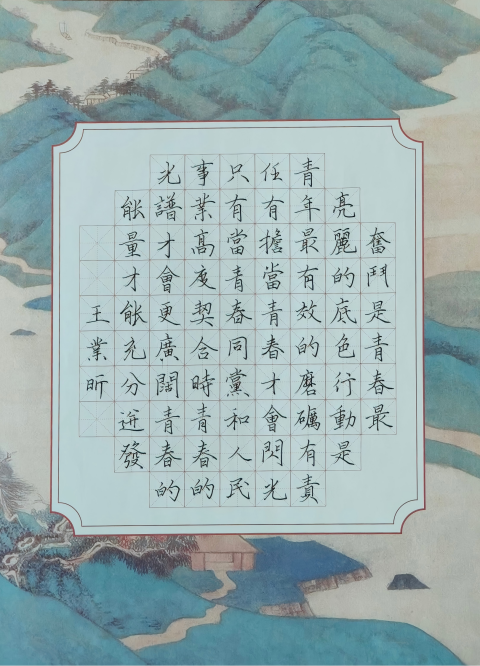 奮鬥是青春最
亮麗的底色行動是
青年最有效的磨礪有責
任有擔當青春才會閃光
只有當青春同黨和人民
事業高度契合時青春的
光譜才會更廣闊青春的
能量才能充分迸發
王業昕